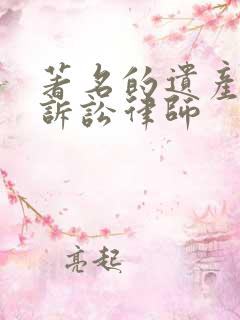 著名的遺產
訴訟律師
亮起